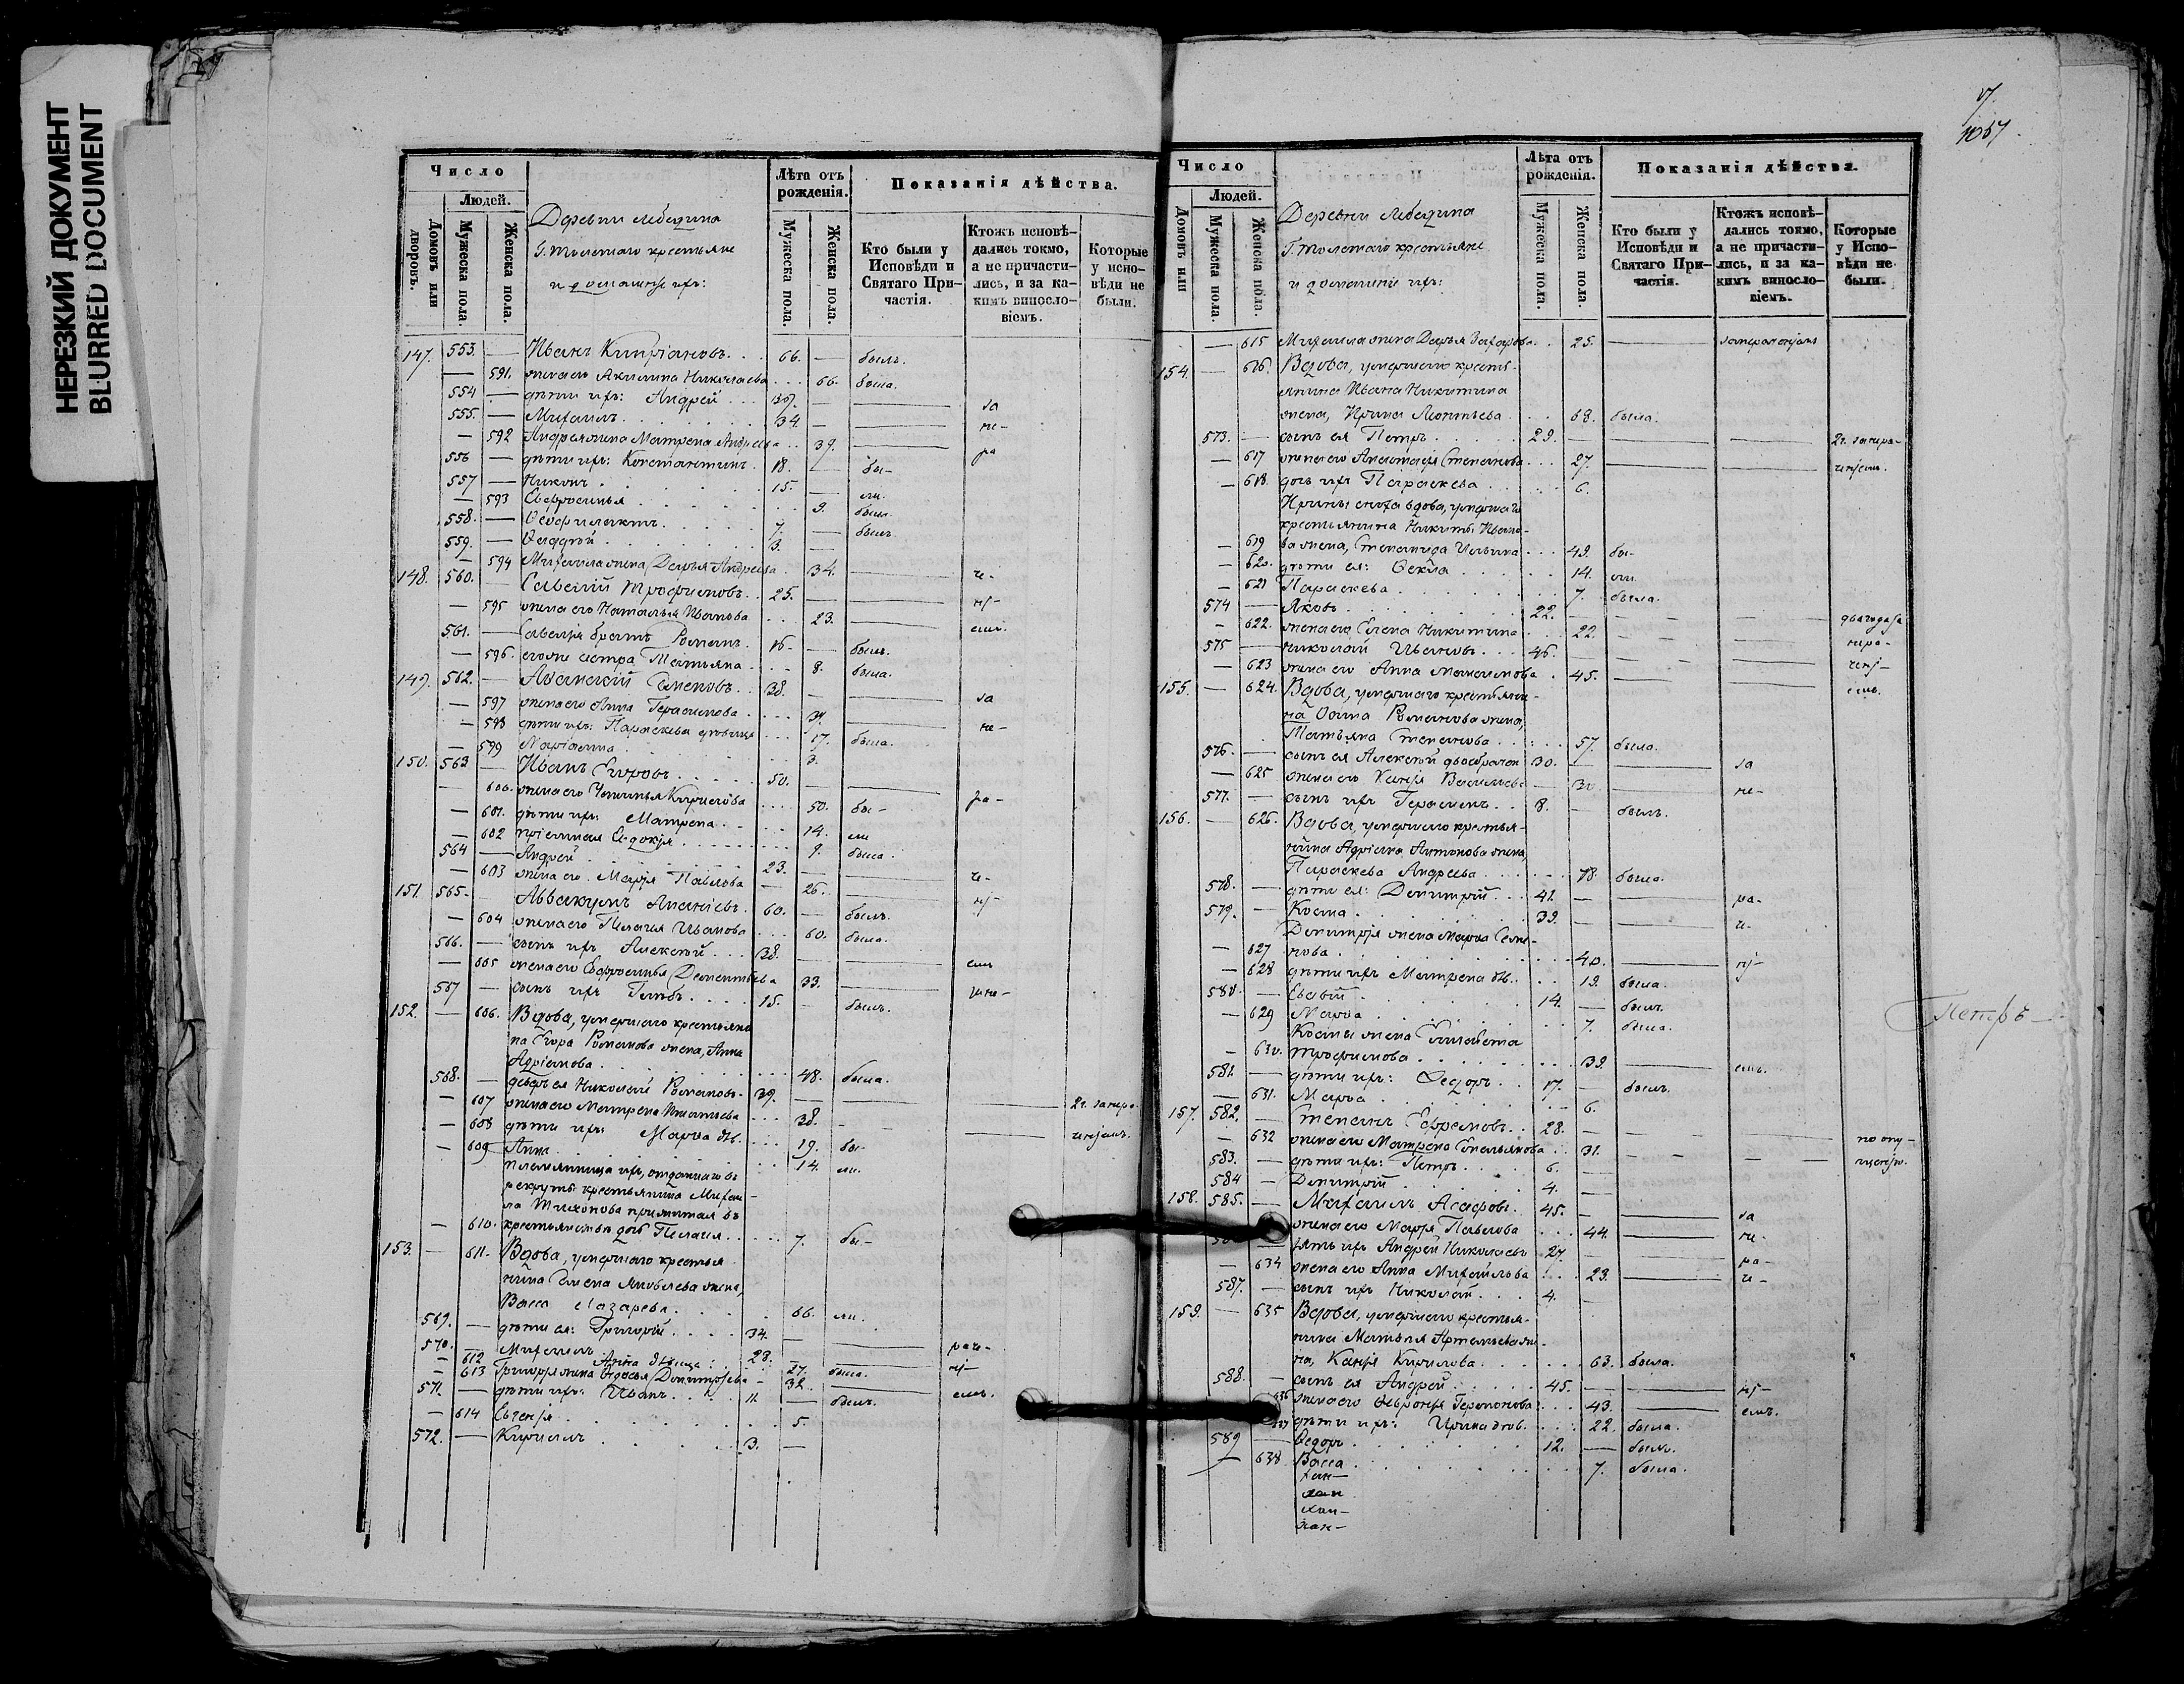 НЕРЕЗКИЙ ДОКУМЕНТ
BLURRED DOCUMENT
Число
Людей.
Домовъ или дворовъ.
Мужеска пола.
Женска пола.
Деревни Лебедина
Г. Толстаго крестьяне
и домашніе ихъ:
Лѣта отъ рожденія.
Мужеска пола.
Женска пола.
Показанія дѣйства.
Кто были у Исповѣди и Святаго Причастія.
Ктожъ исповѣ-
дались токмо,
а не причасти-
лись, и за ка-
кимъ винсло-
віемъ.
Которые
у испо-
вѣди не
были.
147. 553. — Иванъ Кипріановъ. 66. — былъ.
— 591. жена его Акилина Николаева 66. была.
554 — дѣти ихъ: Андрей 39. — за
555. — Михаилъ 34. — не-
— 592 Андрея жена Матрена Андреева 39. ра
556 — дѣти ихъ: Константинъ. 18. — бы-
557 — Никонъ 15. — ли.
— 593 Евфросинья 9. была.
558. — Ѳеофилактъ 7. — былъ.
559. — Ѳаддѣй 3. —
— 594 Михаила жена Дарья Андреева 34. че-
148. 560. — Савелій Трофимовъ 25. — нј-
— 595 жена его Наталья Иванова 23. емъ.
561. — Савелія братъ Романъ. 16. — былъ.
— 596. его же сестра Татьяна 8. была.
149. 562. — Аѳанасій Семеновъ 38. — за
— 597 жена его Анна Герасимова 34. не-
— 598 дѣти ихъ: Параскева дѣвица 17. была.
— 599 Маріанна 3.
150. 563 — Иванъ Егоровъ 50. — ра-
— 600. жена его Кирилова 50. бы-
— 601. дѣти ихъ: Матрена 14. ли
— 602 пріемная Евдокія 9. была.
564 — Андрей 23. — че-
— 603 жена его Марія Павлова 26. нј-
151. 565. — Аввакумъ Ананіевъ. 60. — былъ.
— 604 жена его Пелагея Иванова 60. была.
566. — сынъ ихъ Алексѣй 38. — емъ
— 605 жена его Евфросинья Дементьева 33.
567 — сынъ ихъ Глѣбъ 15. — былъ.
152. — 606. Вдова, умершаго крестьяни-
на Егора Романова жена, Анна
Адріанова 48. была.
568. — деверь ея Николай Романовъ. 39. — 2г. за нера-
— 607 жена его Матрена Игнатьева 38. ченіемъ.
— 608 дѣти ихъ: Марѳа дѣв. 19. бы-
— 609 Анна 14. ли.
племянница ихъ, отданнаго въ
рекруты крестьянина Михаи-
ла Тихонова прижитая въ
— 610. крестьянствѣ дочь Пелагея 7. бы-
153. — 611. Вдова, умершаго крестья-
нина Семена Яковлева жена,
Васса Лазарева. 66. ли.
569. — дѣти ея: Григорій 34. —
570. — Михаилъ 28. — раче-
— 612 Анна дѣвица 27. была.
— 613 Григорія жена Ѳедосья Димитріева 32. нј-
571. — дѣти ихъ: Иванъ 11 — былъ. емъ.
— 614 Евгенія 5.
572. — Кириллъ 3. —
1067.
Число
Людей.
Домовъ или
Мужеска пола.
Женска пола.
Деревни Лебедина
Г. Толстаго крестьяне
и домашніе ихъ:
Лѣта отъ рожденія.
Мужеска пола.
Женска пола.
Показанія дѣйства.
Кто были у
Исповѣди и
Святаго При-
частія.
Ктожъ исповѣ-
дались токмо,
а не причасти-
лись, и за ка-
кимъ винсло-
віемъ.
Которые
у Испо-
вѣди не
были.
— 615 Михаила жена Дарья Захарова 25. за нераченіемъ
154. — 616. Вдова, умершаго кресть-
янина Ивана Никитина
жена, Ирина Леонтьева 68. была.
573. — сынъ ея Петръ 29. — 2г. за нера-
— 617 жена его Анастасія Степанова 27. ченіемъ.
— 618. дочь ихъ Параскева 6.
Ирины сноха вдова, умершаго
крестьянина Никиты Ивано-
— 619 ва жена, Степанида Ильина 49. бы-
— 620. дѣти ея: Ѳекла 14. ли.
— 621 Параскева 7. была.
574 — Яковъ 22. — два года за
— 622. жена его Елена Никитина 22. нера-
575 — Николай Ивановъ 46. — ченј-
— 623 жена его Анна 45. емъ.
155. — 624. Вдова, умершаго крестьяни-
на Ѳомы Романова жена,
Татьяна Степанова 57. была.
576. — сынъ ея Алексѣй двоебрачн 30. — за
— 625 жена его Ксенія Васильева 30. не-
577. — сынъ ихъ Герасимъ 8. — былъ.
156. — 626. Вдова, умершаго крестья-
нина Адріана Антонова жена,
Параскева Андреева 78 была.
578. — дѣти ея: Димитрій 41. — ра-
579. — Косма 39. — че-
Димитрія жена Марѳа Семе-
— 627 нова 40. нј-
— 628 дѣти ихъ Матрена дѣв. 19. была.
580. — Евсѣвій 14. — былъ.
— 629 Марѳа 7. была.
Космы жена Елисавета
— 630. Трофимова 39. емъ.
581. — дѣти ихъ: Ѳедоръ 17. — былъ.
— 631. Марѳа 6.
157. 582. — Степанъ Ефремовъ 28. — по опу-
— 632 жена его Матрена Емельянова 31. щенію.
583. — дѣти ихъ: Петръ 6. —
584 — Димитрій 4. —
158. 585. — Михаилъ Агафовъ. 45. — за
жена его Марія Павлова 44. не-
зять ихъ Андрей Николаевъ 27 — ра-
— 634 жена его Анна Михайлова 23. че-
587. — сынъ ихъ Николай 4. —
159. — 635 Вдова, умершаго крестья-
нина Матвѣя Артемьева же-
на, Ксенія Кирилова 63. была.
588. — сынъ ея Андрей 45. — нј-
636 жена его Ѳевронія 43. емъ.
637 дѣти ихъ: Ирина дѣв. 22. была.
589 — Ѳедоръ 12. — былъ.
— 638 Васса 7. была.
Петръ